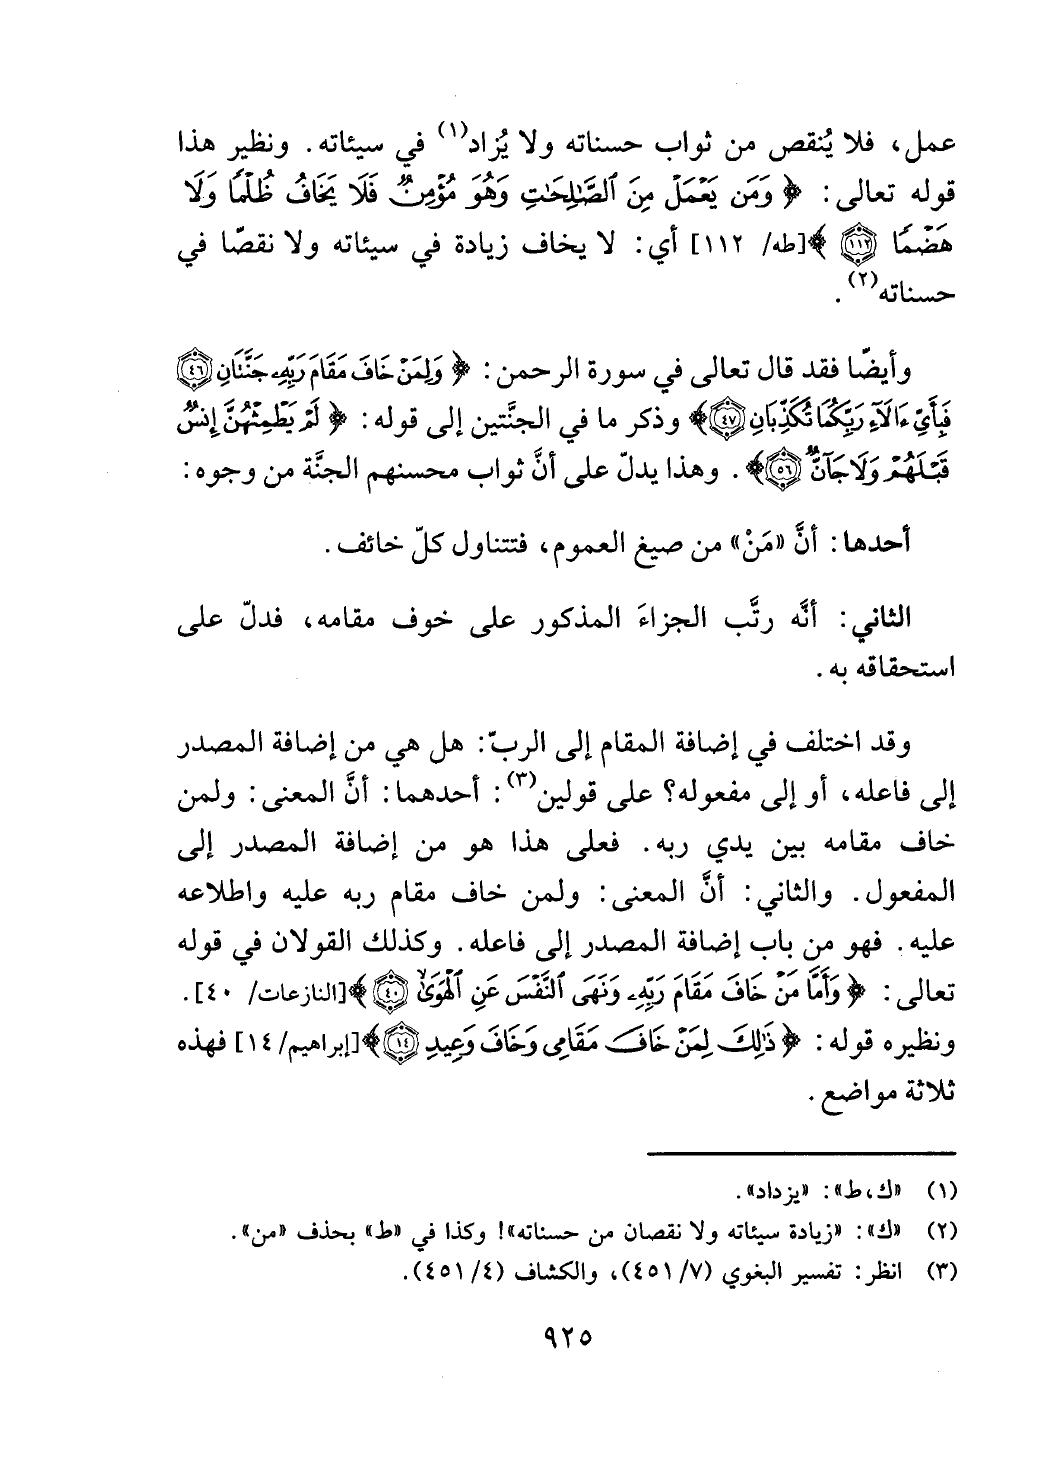 عمل، فلا يُنقص من ثواب حسناته ولا يُزاد(١) في سيئاته. ونظير هذا
قوله تعالى: ﴿ وَمَن يَعْمَلْ مِنَ ٱلصَّٰلِحَٰتِ وَهُوَ مُؤْمِنٌ فَلَا يَخَافُ ظُلْمًا وَلَا
هَضْمًا ١١٢ ﴾[طه/ ١١٢] أي: لا يخاف زيادة في سيئاته ولا نقصًا في
حسناته(٢).
وأيضًا فقد قال تعالى في سورة الرحمن: ﴿ وَلِمَنْ خَافَ مَقَامَ رَبِّهِۦ جَنَّتَانِ ٤٦
فَبِأَيِّ ءَالَآءِ رَبِّكُمَا تُكَذِّبَانِ ٤٧﴾ وذكر ما في الجنَّتين إلى قوله: ﴿ لَمْ يَطْمِثْهُنَّ إِنسٌ
قَبْلَهُمْ وَلَا جَآنٌّ ٥٦﴾. وهذا يدلّ على أنَّ ثواب محسنهم الجنَّة من وجوه:
أحدها: أنَّ «مَنْ» من صيغ العموم، فتتناول كلّ خائف.
الثاني: أنَّه رتَّب الجزاءَ المذكور على خوف مقامه، فدلّ على
استحقاقه به.
وقد اختلف في إضافة المقام إلى الربّ: هل هي من إضافة المصدر
إلى فاعله، أو إلى مفعوله؟ على قولين(٣): أحدهما: أنَّ المعنى: ولمن
خاف مقامه بين يدي ربه. فعلى هذا هو من إضافة المصدر إلى
المفعول. والثاني: أنَّ المعنى: ولمن خاف مقام ربه عليه واطلاعه
عليه. فهو من باب إضافة المصدر إلى فاعله. وكذلك القولان في قوله
تعالى: ﴿ وَأَمَّا مَنْ خَافَ مَقَامَ رَبِّهِۦ وَنَهَى ٱلنَّفْسَ عَنِ ٱلْهَوَىٰ ٤٠ ﴾[النازعات/ ٤٠].
ونظيره قوله: ﴿ ذَٰلِكَ لِمَنْ خَافَ مَقَامِى وَخَافَ وَعِيدِ ١٤ ﴾[إبراهيم/ ١٤] فهذه
ثلاثة مواضع.
(١) «ك، ط»: «يزداد».
(٢) «ك»: «زيادة سيئاته ولا نقصان من حسناته»! وكذا في «ط» بحذف «من».
(٣) انظر: تفسير البغوي (٧/ ٤٥١)، والكشاف (٤/ ٤٥١).
٩٢٥